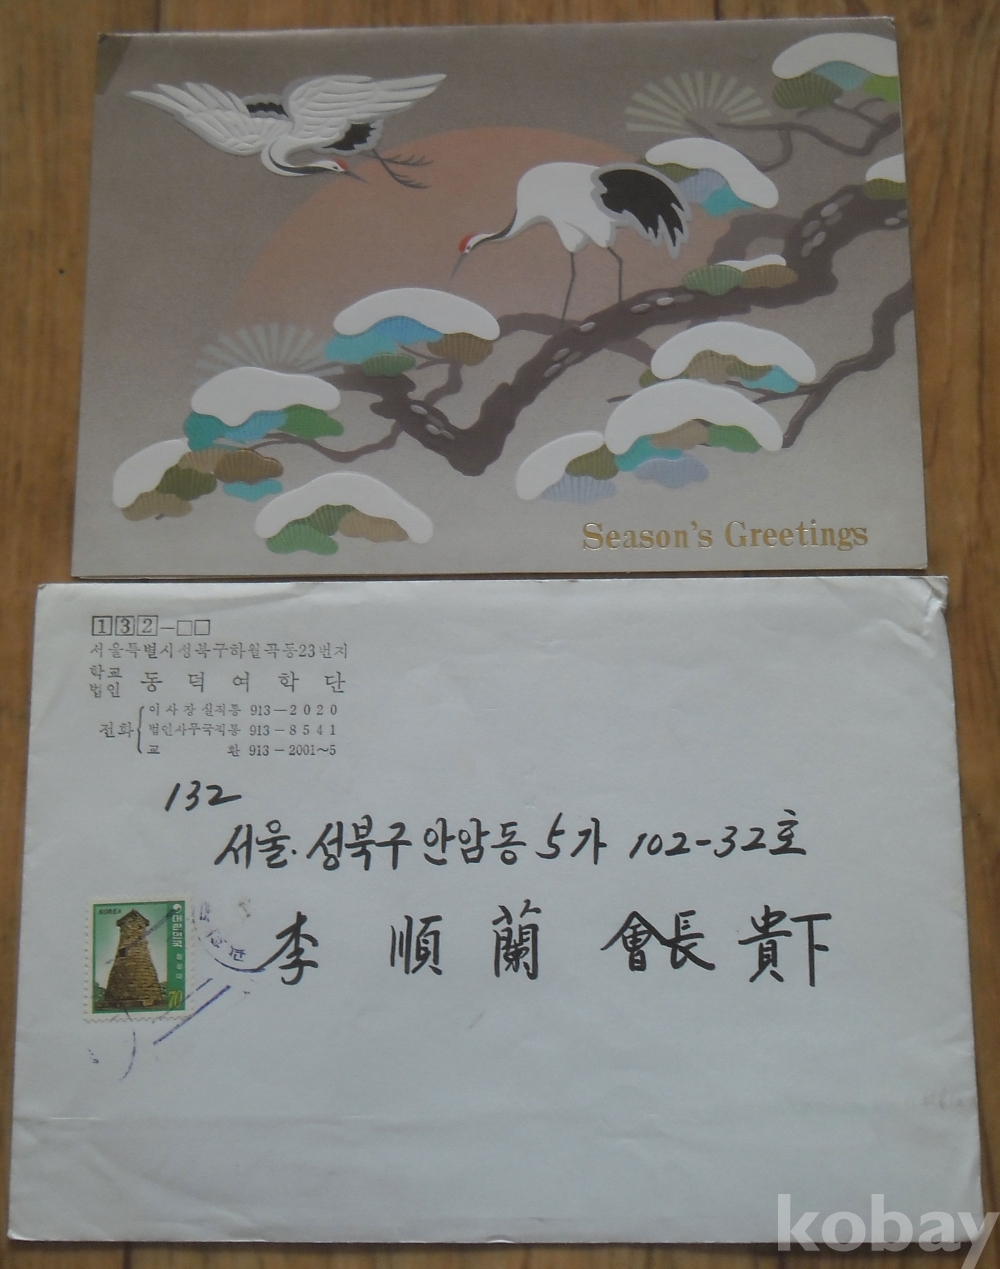 Season's Greetings
132-□□
서울특별시성북구하월곡동23번지
학교법인 동덕여학단
전화
이사장실직통 913-2020
법인사무국직통 913-8541
교환 913-2001~5
132
서울. 성북구 안암동 5가 102-32호
李 順 蘭 會長 貴下
KOREA
대한민국
첨성대
70
kobay